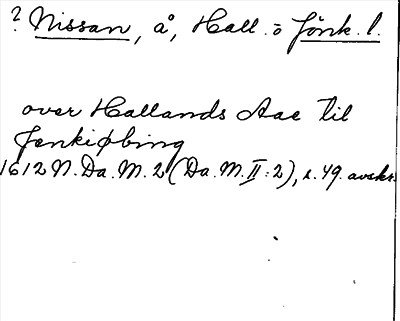 ? Nissan, å, Hall. o Jönk. l.
over Hallands Aae til
Jenkiøbing
1612 N. Da. M. 2 (Da. M. II:2), s. 49. avskr.